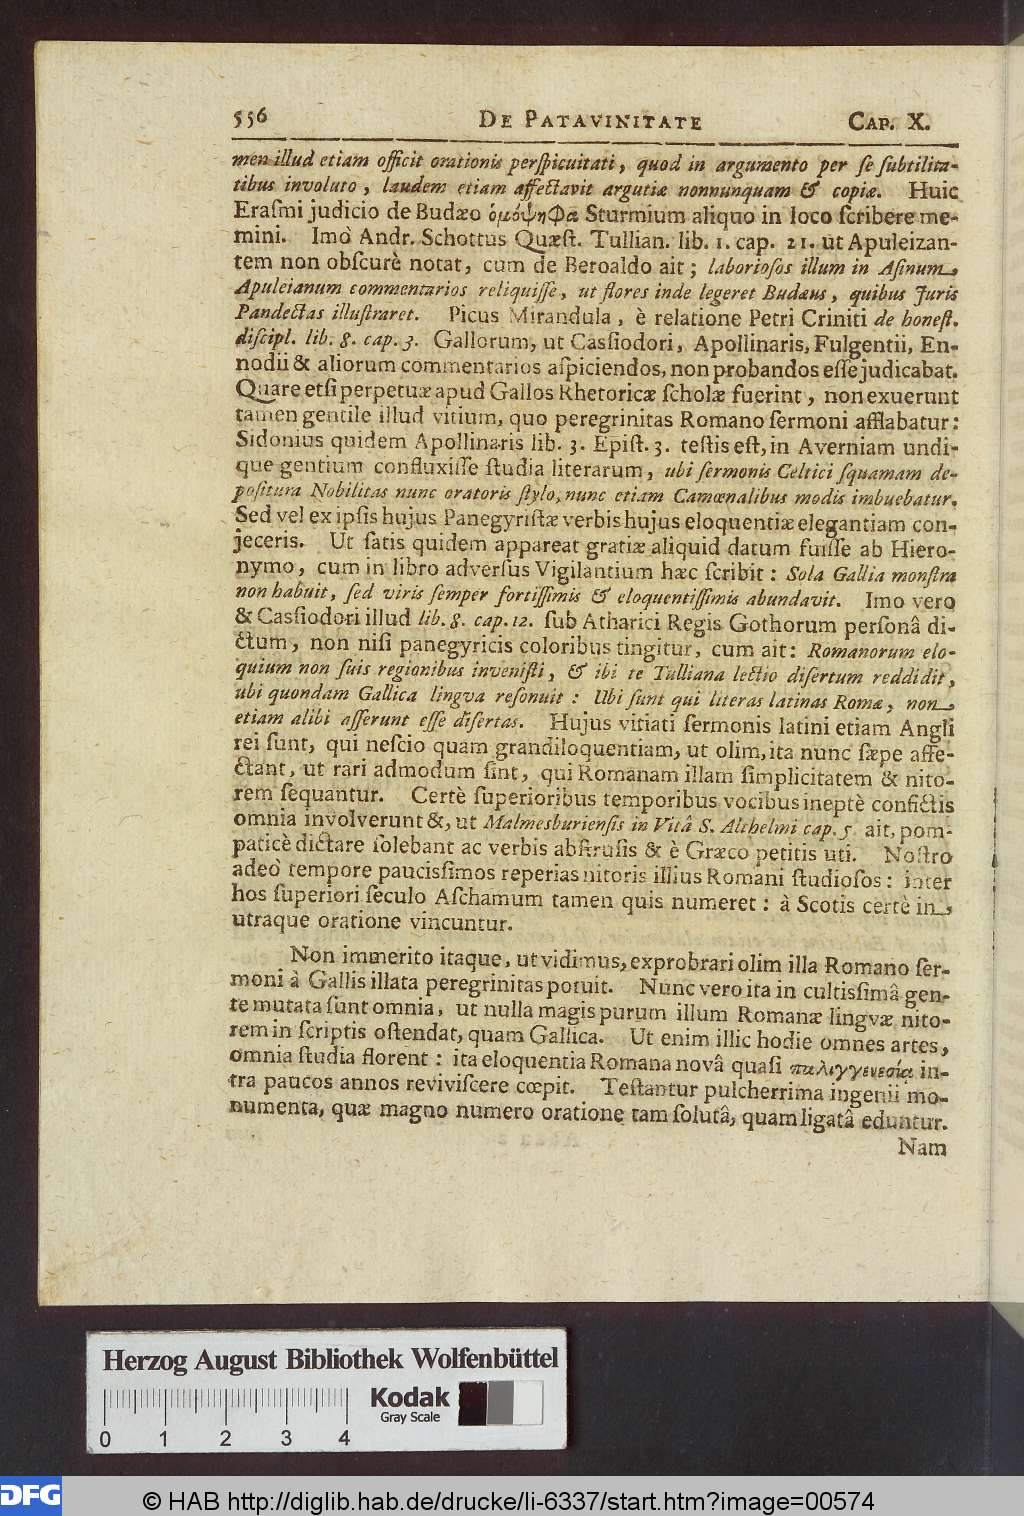 556 DE PATAVINITATE CAP. X.
men illud etiam officit orationis perſpicuitati, quod in argumento per ſe ſubtilita-
tibus involuto, laudem etiam affectavit argutiæ nonnunquam & copiæ. Huic
Eraſmi judicio de Budæo ὁμόψηφα Sturmium aliquo in loco ſcribere me-
mini. Imò Andr. Schottus Quæſt. Tullian. lib. 1. cap. 21. ut Apuleizan-
tem non obſcurè notat, cum de Beroaldo ait; laborioſos illum in Aſinum
Apuleianum commentarios reliquiſſe, ut flores inde legeret Budæus, quibus Juris
Pandectas illuſtraret. Picus Mirandula, è relatione Petri Criniti de honeſt.
diſcipl. lib. 8. cap. 3. Gallorum, ut Caſſiodori, Apollinaris, Fulgentii, En-
nodii & aliorum commentarios aſpiciendos, non probandos eſſe judicabat.
Quare etſi perpetuæ apud Gallos Rhetoricæ ſcholæ fuerint, non exuerunt
tamen gentile illud vitium, quo peregrinitas Romano ſermoni afflabatur:
Sidonius quidem Apollinaris lib. 3. Epiſt. 3. teſtis eſt, in Averniam undi-
que gentium confluxiſſe ſtudia literarum, ubi ſermonis Celtici ſquamam de-
poſitura Nobilitas nunc oratoris ſtylo, nunc etiam Camœnalibus modis imbuebatur.
Sed vel ex ipſis hujus Panegyriſtæ verbis hujus eloquentiæ elegantiam con-
jeceris. Ut ſatis quidem appareat gratiæ aliquid datum fuiſſe ab Hiero-
nymo, cum in libro adverſus Vigilantium hæc ſcribit: Sola Gallia monſtra
non habuit, ſed viris ſemper fortiſſimis & eloquentiſſimis abundavit. Imo vero
& Caſſiodori illud lib. 8. cap. 12. ſub Atharici Regis Gothorum perſonâ di-
ctum, non niſi panegyricis coloribus tingitur, cum ait: Romanorum elo-
quium non ſuis regionibus inveniſti, & ibi te Tulliana lectio diſertum reddidit,
ubi quondam Gallica lingva reſonuit: Ubi ſunt qui literas latinas Romæ, non
etiam alibi aſſerunt eſſe diſertas. Hujus vitiati ſermonis latini etiam Angli
rei ſunt, qui neſcio quam grandiloquentiam, ut olim, ita nunc ſæpe affe-
ctant, ut rari admodum ſint, qui Romanam illam ſimplicitatem & nito-
rem ſequantur. Certè ſuperioribus temporibus vocibus ineptè confictis
omnia involverunt &, ut Malmesburienſis in Vitâ S. Althelmi cap. 5. ait, pom-
paticè dictare ſolebant ac verbis abſtruſis & è Græco petitis uti. Noſtro
adeò tempore pauciſſimos reperias nitoris illius Romani ſtudioſos: inter
hos ſuperiori ſeculo Aſchamum tamen quis numeret: à Scotis certè in
utraque oratione vincuntur.
Non immerito itaque, ut vidimus, exprobrari olim illa Romano ſer-
moni à Gallis illata peregrinitas potuit. Nunc vero ita in cultiſſimâ gen-
te mutata ſunt omnia, ut nulla magis purum illum Romanæ lingvæ nito-
rem in ſcriptis oſtendat, quam Gallica. Ut enim illic hodie omnes artes,
omnia ſtudia florent: ita eloquentia Romana novâ quaſi παλιγγενεσία in-
tra paucos annos reviviſcere cœpit. Teſtantur pulcherrima ingenii mo-
numenta, quæ magno numero oratione tam ſolutâ, quam ligatâ eduntur.
Nam
Herzog August Bibliothek Wolfenbüttel
Kodak
Gray Scale
0 1 2 3 4
DFG
© HAB http://diglib.hab.de/drucke/li-6337/start.htm?image=00574